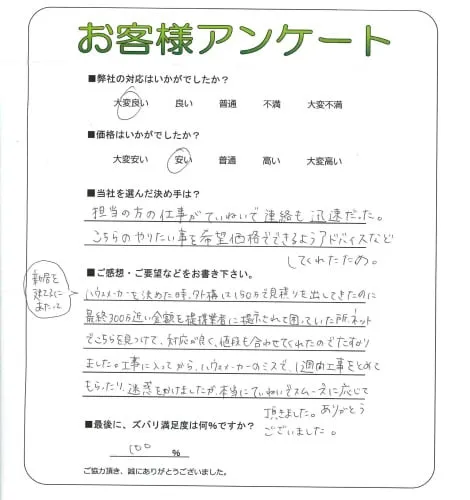 お客様アンケート
■弊社の対応はいかがでしたか？
大変良い 良い 普通 不満 大変不満
■価格はいかがでしたか？
大変安い 安い 普通 高い 大変高い
■当社を選んだ決め手は？
担当の方の仕事がていねいで連絡も迅速だった。
こちらのやりたい事を希望価格でできるようアドバイスなど
してくれたため。
■ご感想・ご要望などをお書き下さい。
新居を
建てるに
あたって
ハウスメーカーを決めた時、外構は150万で見積りを出してきたのに
最終300万近い金額を提携業者に提示されて困っていた所、ネット
でこちらを見つけて、対応が良く、値段も合わせてくれたのでたすかり
ました。工事に入ってから、ハウスメーカーのミスで、1週間工事をとめて
もらったり、迷惑をかけましたが、本当にていねいでスムーズに応じて
頂きました。ありがとう
ございました。
■最後に、ズバリ満足度は何%ですか？
100 %
ご協力頂き、誠にありがとうございました。